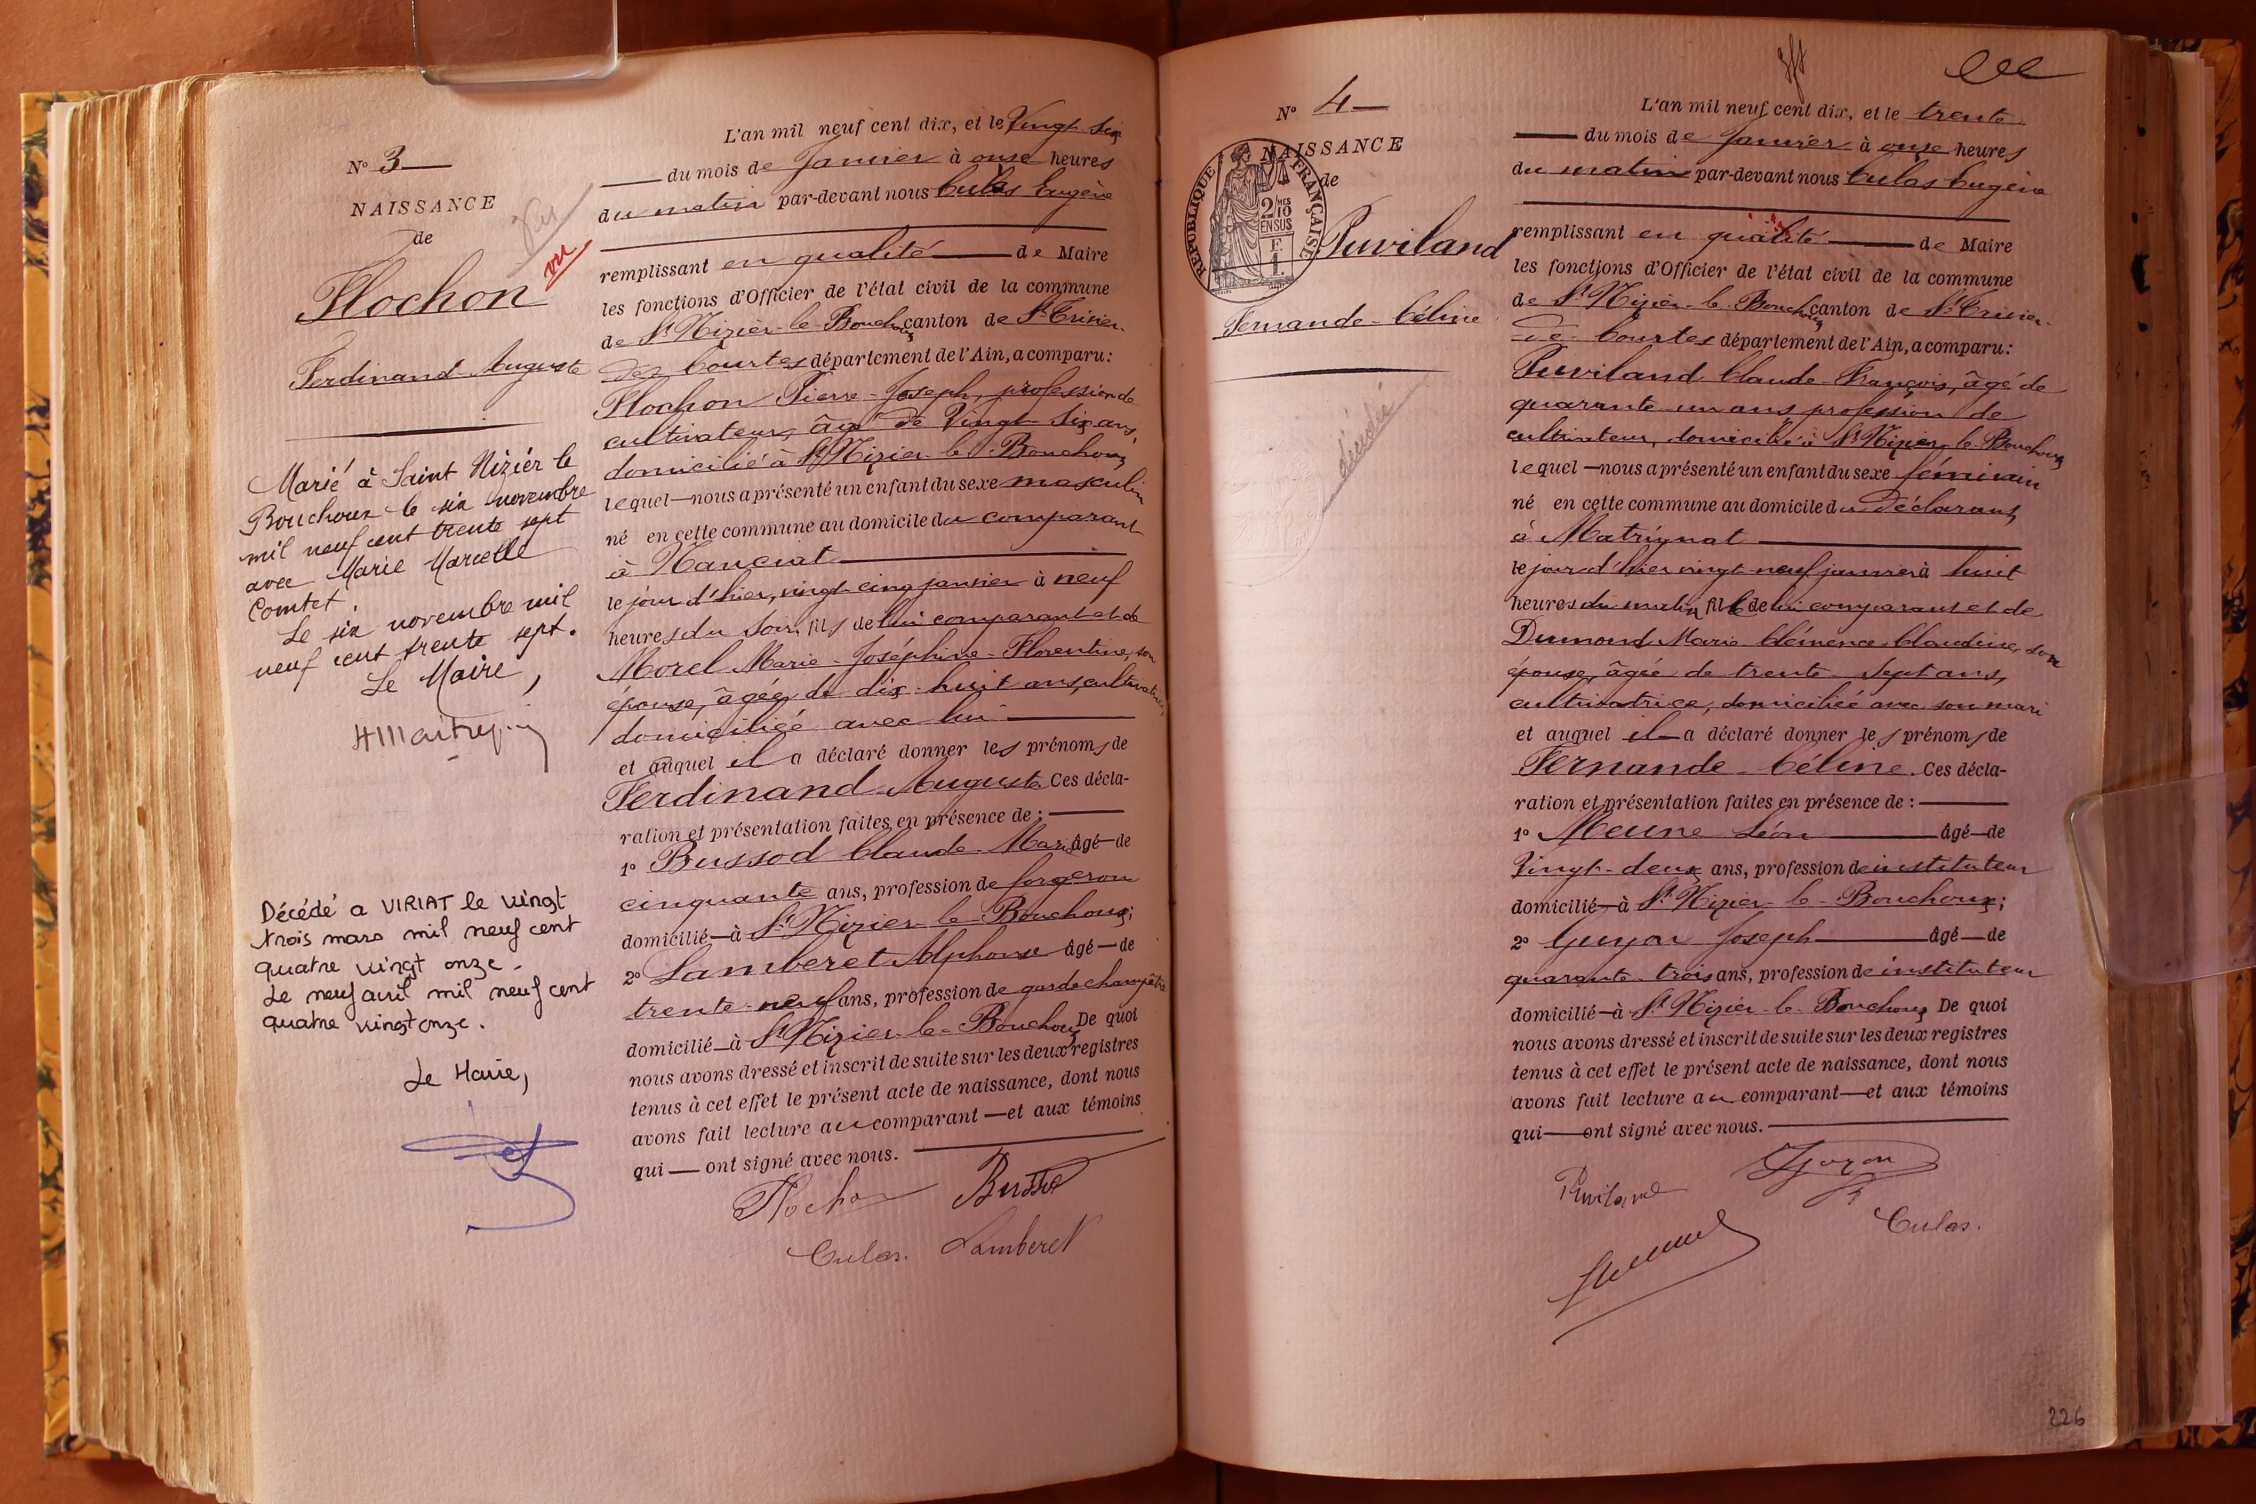 N° 3
NAISSANCE
de
Flochon
Ferdinand Auguste
vu
Marié à Saint Nizier le
Bouchoux le six novembre
mil neuf cent trente sept
avec Marie Marcelle
Comtet.
Le six novembre mil
neuf cent trente sept.
Le Maire,
Décédé a VIRIAT le vingt
trois mars mil neuf cent
quatre vingt onze.
Le neuf avril mil neuf cent
quatre vingt onze.
Le Maire,
L'an mil neuf cent dix, et le Vingt six
du mois de Janvier à onze heures
du matin par-devant nous Culas Eugène
remplissant en qualité de Maire
les fonctions d'Officier de l'état civil de la commune
de St Nizier-le-Bouchoux canton de St Trivier-
de Courtes département de l'Ain, a comparu :
Flochon Pierre-Joseph, profession de
cultivateur, âgé de Vingt six ans,
domicilié à St Nizier-le-Bouchoux
lequel nous a présenté un enfant du sexe masculin
né en cette commune au domicile du comparant
à Nanciat
le jour d'hier, vingt-cinq janvier à neuf
heures du soir, fils de lui comparant et de
Morel Marie-Joséphine-Florentine, son
épouse, âgée de dix-huit ans, cultivatrice,
domiciliée avec lui
et auquel il a déclaré donner les prénoms de
Ferdinand Auguste Ces décla-
ration et présentation faites en présence de :
1° Bussod Claude-Marie âgé de
cinquante ans, profession de forgeron
domicilié à St Nizier-le-Bouchoux;
2° Lamberet Alphonse âgé de
trente-neuf ans, profession de garde champêtre
domicilié à St Nizier-le-Bouchoux De quoi
nous avons dressé et inscrit de suite sur les deux registres
tenus à cet effet le présent acte de naissance, dont nous
avons fait lecture au comparant et aux témoins
qui ont signé avec nous.
Flochon
Culas. Lamberet
N° 4
NAISSANCE
de
RÉPUBLIQUE FRANÇAISE
2/10 MES
EN SUS
F.
1.
Puviland
Fernande-Céline
L'an mil neuf cent dix, et le trente
du mois de Janvier à onze heures
du matin par-devant nous Culas Eugène
remplissant en qualité de Maire
les fonctions d'Officier de l'état civil de la commune
de St Nizier-le-Bouchoux canton de St Trivier-
de-Courtes département de l'Ain, a comparu :
Puviland Claude-François, âgé de
quarante-un ans profession de
cultivateur, domicilié à St Nizier-le-Bouchoux
lequel nous a présenté un enfant du sexe féminin
né en cette commune au domicile du déclarant,
à Matrignat
le jour d'hier vingt-neuf janvier à huit
heures du matin fille de lui comparant et de
Dumond Marie-Clémence-Claudine, son
épouse, âgée de trente-sept ans,
cultivatrice, domiciliée avec son mari
et auquel il a déclaré donner les prénoms de
Fernande-Céline. Ces décla-
ration et présentation faites en présence de :
1° Meune Léon âgé de
Vingt-deux ans, profession de instituteur
domicilié à St Nizier-le-Bouchoux;
2° Guyon Joseph âgé de
quarante-trois ans, profession de instituteur
domicilié à St Nizier-le-Bouchoux De quoi
nous avons dressé et inscrit de suite sur les deux registres
tenus à cet effet le présent acte de naissance, dont nous
avons fait lecture au comparant et aux témoins
qui ont signé avec nous.
Puviland
Culas.
226